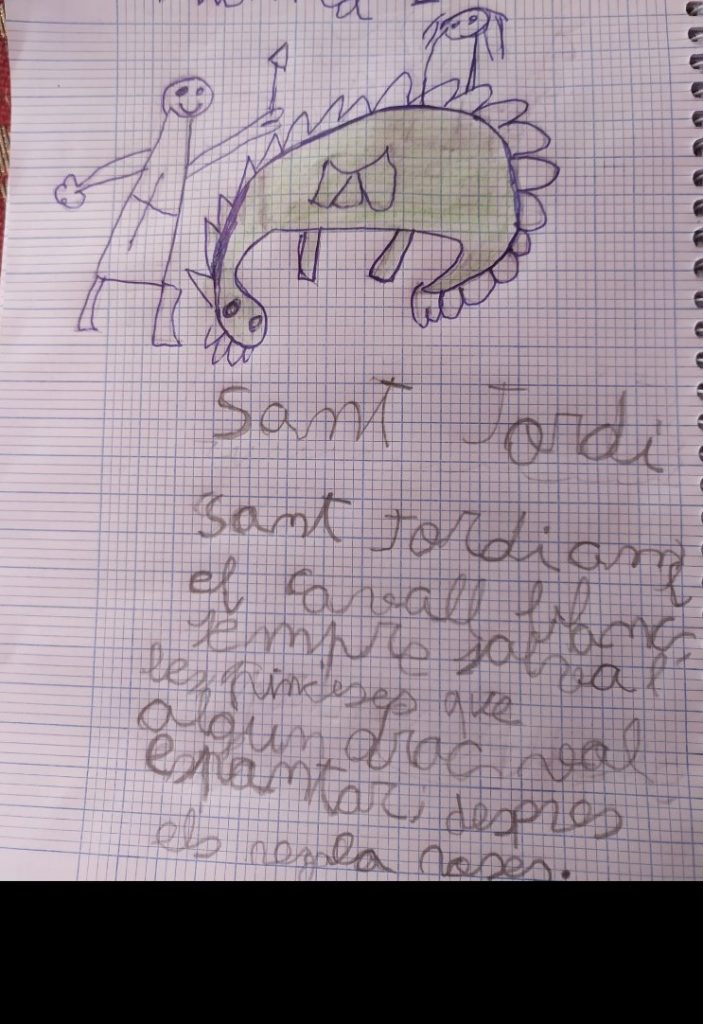 Sant Jordi
Sant Jordi amb
el cavall blanc
sempre salva
les princeses que
algun drac vol
espantar i despres
els regala roses.